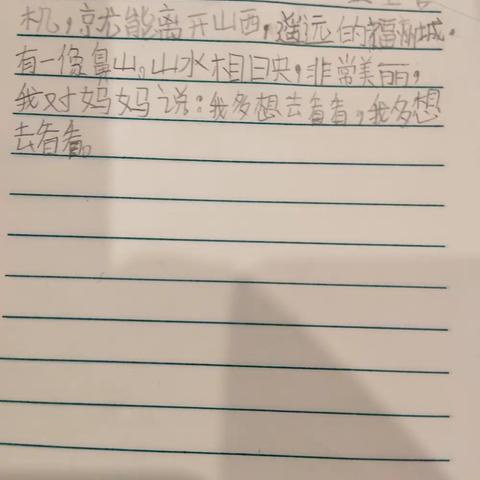 机，京尤能离开山西，遥远的福州城。
有一像鼻山。山水相日央，非常美丽，
我对妈妈说：我多想去看看，我多想
去看看。